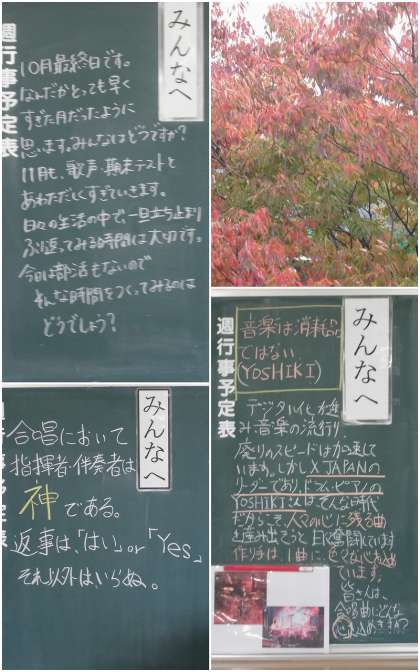 みんなへ
週行事予定表
10月最終日です。
なんだかとっても早く
すぎた月だったように
思います。みんなはどうですか?
11月も、歌声・期末テストと
あわただしくすぎていきます。
日々の生活の中で、一旦立ち止まり
ふり返ってみる時間は大切です。
今日は部活もないので
そんな時間をつくってみるのは
どうでしょう?
みんなへ
合唱において
指揮者・伴奏者は
神である。
返事は、「はい」or「Yes」
それ以外はいらぬ。
みんなへ
週行事予定表
音楽は消耗品
ではない
(YOSHIKI)
デジタル化が進
み、音楽の流行り
廃りのスピードは加速して
います。しかしX JAPANの
リーダーであり、ドラム・ピアノの
YOSHIKIさんは、そんな時代
だからこそ、人々の心に残る曲
を産み出そうと日々奮闘しています
作り手は、1曲に、色々な心をこめ
ています。
皆さんは、
合唱曲にどんな
心を込めますか?